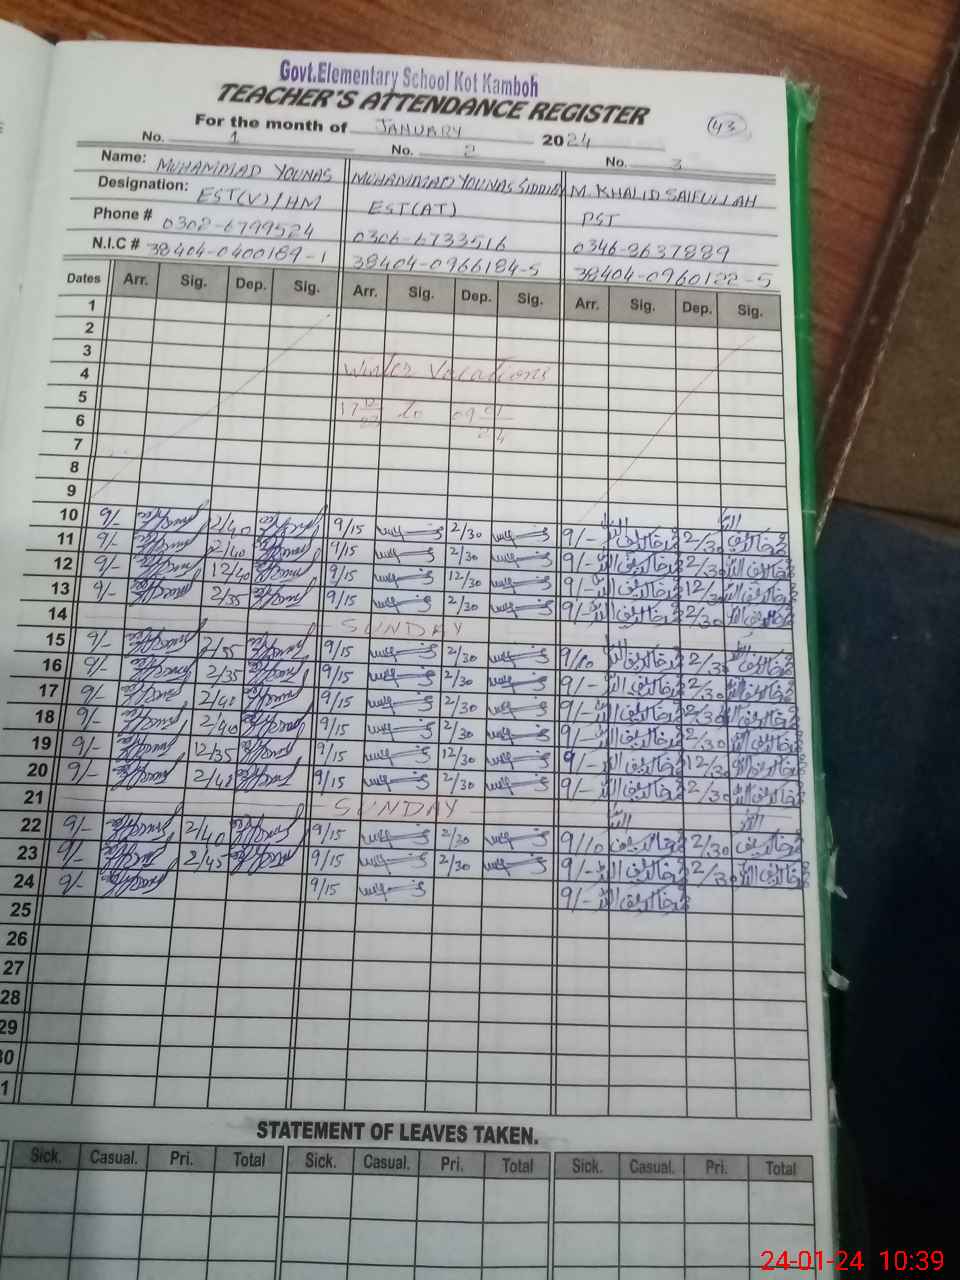 Govt.Elementary School Kot Kamboh
TEACHER'S ATTENDANCE REGISTER
For the month of JANUARY 2024 43
No. 1 No. 2 No. 3
Name: MUHAMMAD YOUNAS MUHAMMAD YOUNAS SIDDIQ M. KHALID SAIFULLAH
Designation: EST(V)/HM EST(AT) PST
Phone # 0302-6799524 0306-6733516 0346-8637889
N.I.C # 38404-0400189-1 38404-0966184-5 38404-0960122-5
Dates Arr. Sig. Dep. Sig. Arr. Sig. Dep. Sig. Arr. Sig. Dep. Sig.
1
2
3
4 Winter Vacations
5
6 17 12/23 to 09 01/24
7
8
9
10 9/- 2/40 9/15 2/30 9/- 2/30
11 9/- 2/40 9/15 2/30 9/- 2/30
12 9/- 12/40 9/15 12/30 9/- 12/30
13 9/- 2/35 9/15 2/30 9/- 2/30
14 SUNDAY
15 9/- 2/35 9/15 2/30 9/10 2/30
16 9/- 2/35 9/15 2/30 9/- 2/30
17 9/- 2/40 9/15 2/30 9/- 2/30
18 9/- 2/40 9/15 2/30 9/- 2/30
19 9/- 12/35 9/15 12/30 9/- 12/30
20 9/- 2/40 9/15 2/30 9/- 2/30
21 SUNDAY
22 9/- 2/40 9/15 2/30 9/10 2/30
23 9/- 2/45 9/15 2/30 9/- 2/30
24 9/- 9/15 9/-
25
26
27
28
29
30
1
STATEMENT OF LEAVES TAKEN.
Sick. Casual. Pri. Total Sick. Casual. Pri. Total Sick. Casual. Pri. Total
24-01-24 10:39